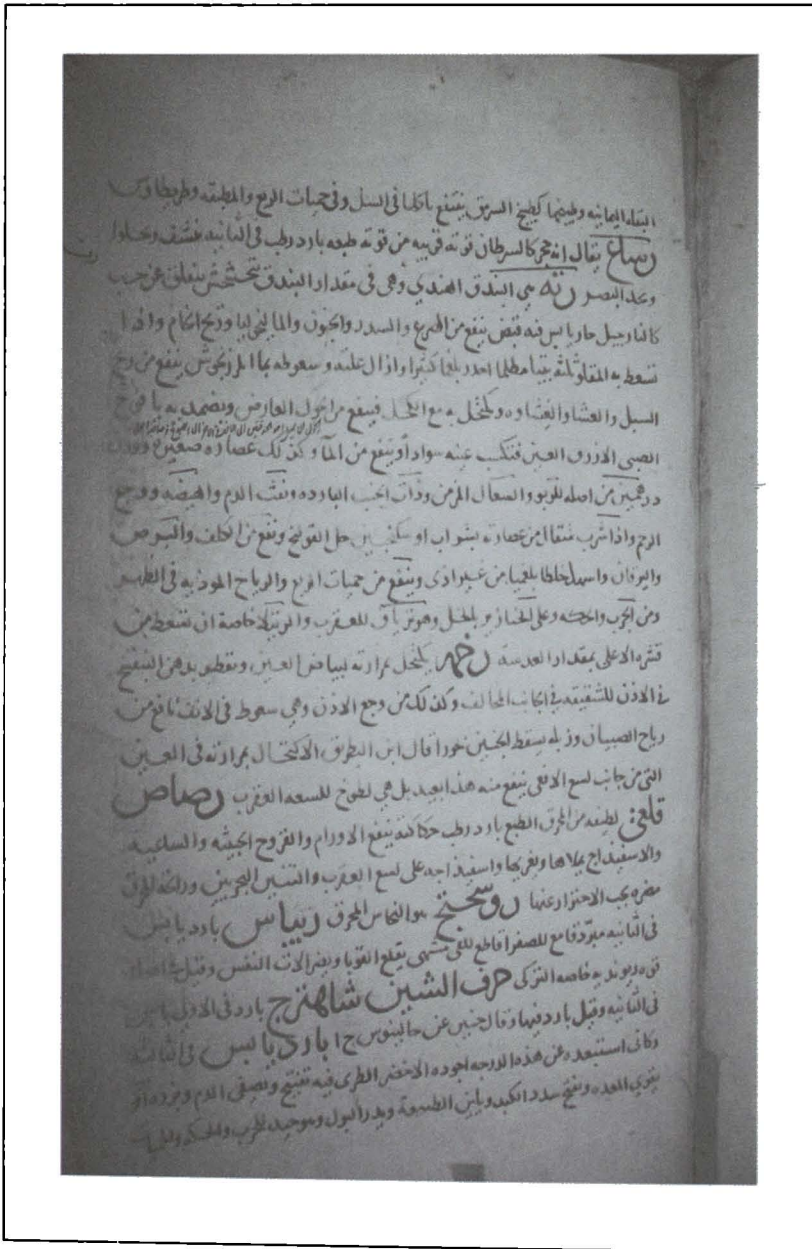 البقله اليمانيه وطبيخها كطبيخ السرمق ينتفع باكلها فى السل وفى حميات الربع والمطبقه
يقال انه حجر كالسرطان قوته قريبه من قوته طبعه بارد رطب فى الثانيه ينشف ويجلوا
ويحد البصر رته هى البندق الهندي وهى فى مقدار البندق يتخشخش ينفلق عن حب
كالنارجيل حار يابس فيه قبض ينفع من الصرع والسدر والجنون والماليخوليا وريح الخام واذا
تسعط به المفلوج ثلثه بيتا مظلما احدر بلغما كثيرا وازال علته وسعوطه بما المرزنجوش ينفع من ريح
السبل والعشا والغشاوه ويكتحل به مع الكحل فينفع من الحول العارض ويضمد به يافوخ
الصبى الازرق العين فتكسب عينه سوادا وينفع من الما وكذلك عصاره
درهمين من اصله للربو والسعال المزمن وذات الجنب البارده ونفث الدم والهيضه ووجع
الرحم واذا شرب مثقال من عصارته بشراب او سكنجبين حل القولنج ونفع من الكلف والبرص
واليرقان واسهل خلطا بلغميا من غير اذى وينفع من حميات الربع والرياح الموذيه فى الظهر
ومن الجرب والحكه وعلى الخنازير بالخل وهو ترياق للعقرب والرتيلا خاصة ان تسعط من
قشره الاعلى بمقدار العدسه رخمه يكتحل بمرارته لبياض العين ويقطر بدهن البنفسج
فى الاذن للشقيقه فى الجانب المخالف وكذلك من وجع الاذن وهى سعوط فى الانف نافع من
رياح الصبيان وزبله يسقط الجنين بخورا قال ابن البطريق الاكتحال بمرارته فى العين
التى من جانب لسع الافعى ينفع منه هذا بعيد بل هى لطوخ للسعه العقرب رصاص
قلعى: لطيفه من المحرق الطبع بارد رطب حكاكته ينفع الاورام والقروح الخبيثه والساعيه
والاسفيذاج يملاها ويغريها واسفيذاجه على لسع العقرب والتنين البحريين ورائحة المحرق
مضره يجب الاحتراز عنها روسختج هو النحاس المحرق ريباس بارد يابس
فى الثانيه مبرد قامع للصفرا قاطع للقى مشهى يقلع القوبا ويضر الات النفس وقيل
قوه ريونديه خاصه التركى حرف الشين شاهترج بارد فى الاولى يابس
فى الثانيه وقيل بارد فيها وقال حنين عن جالينوس بارد يابس فى الثالثه
وكانى استبعده عن هذه الدرجه اجوده الاخضر الطرى فيه تفتيح وتصفى الدم
يقوي المعده ويفتح سدد الكبد ويلين الطبيعة ويدر البول وهو جيد للجرب والحكه